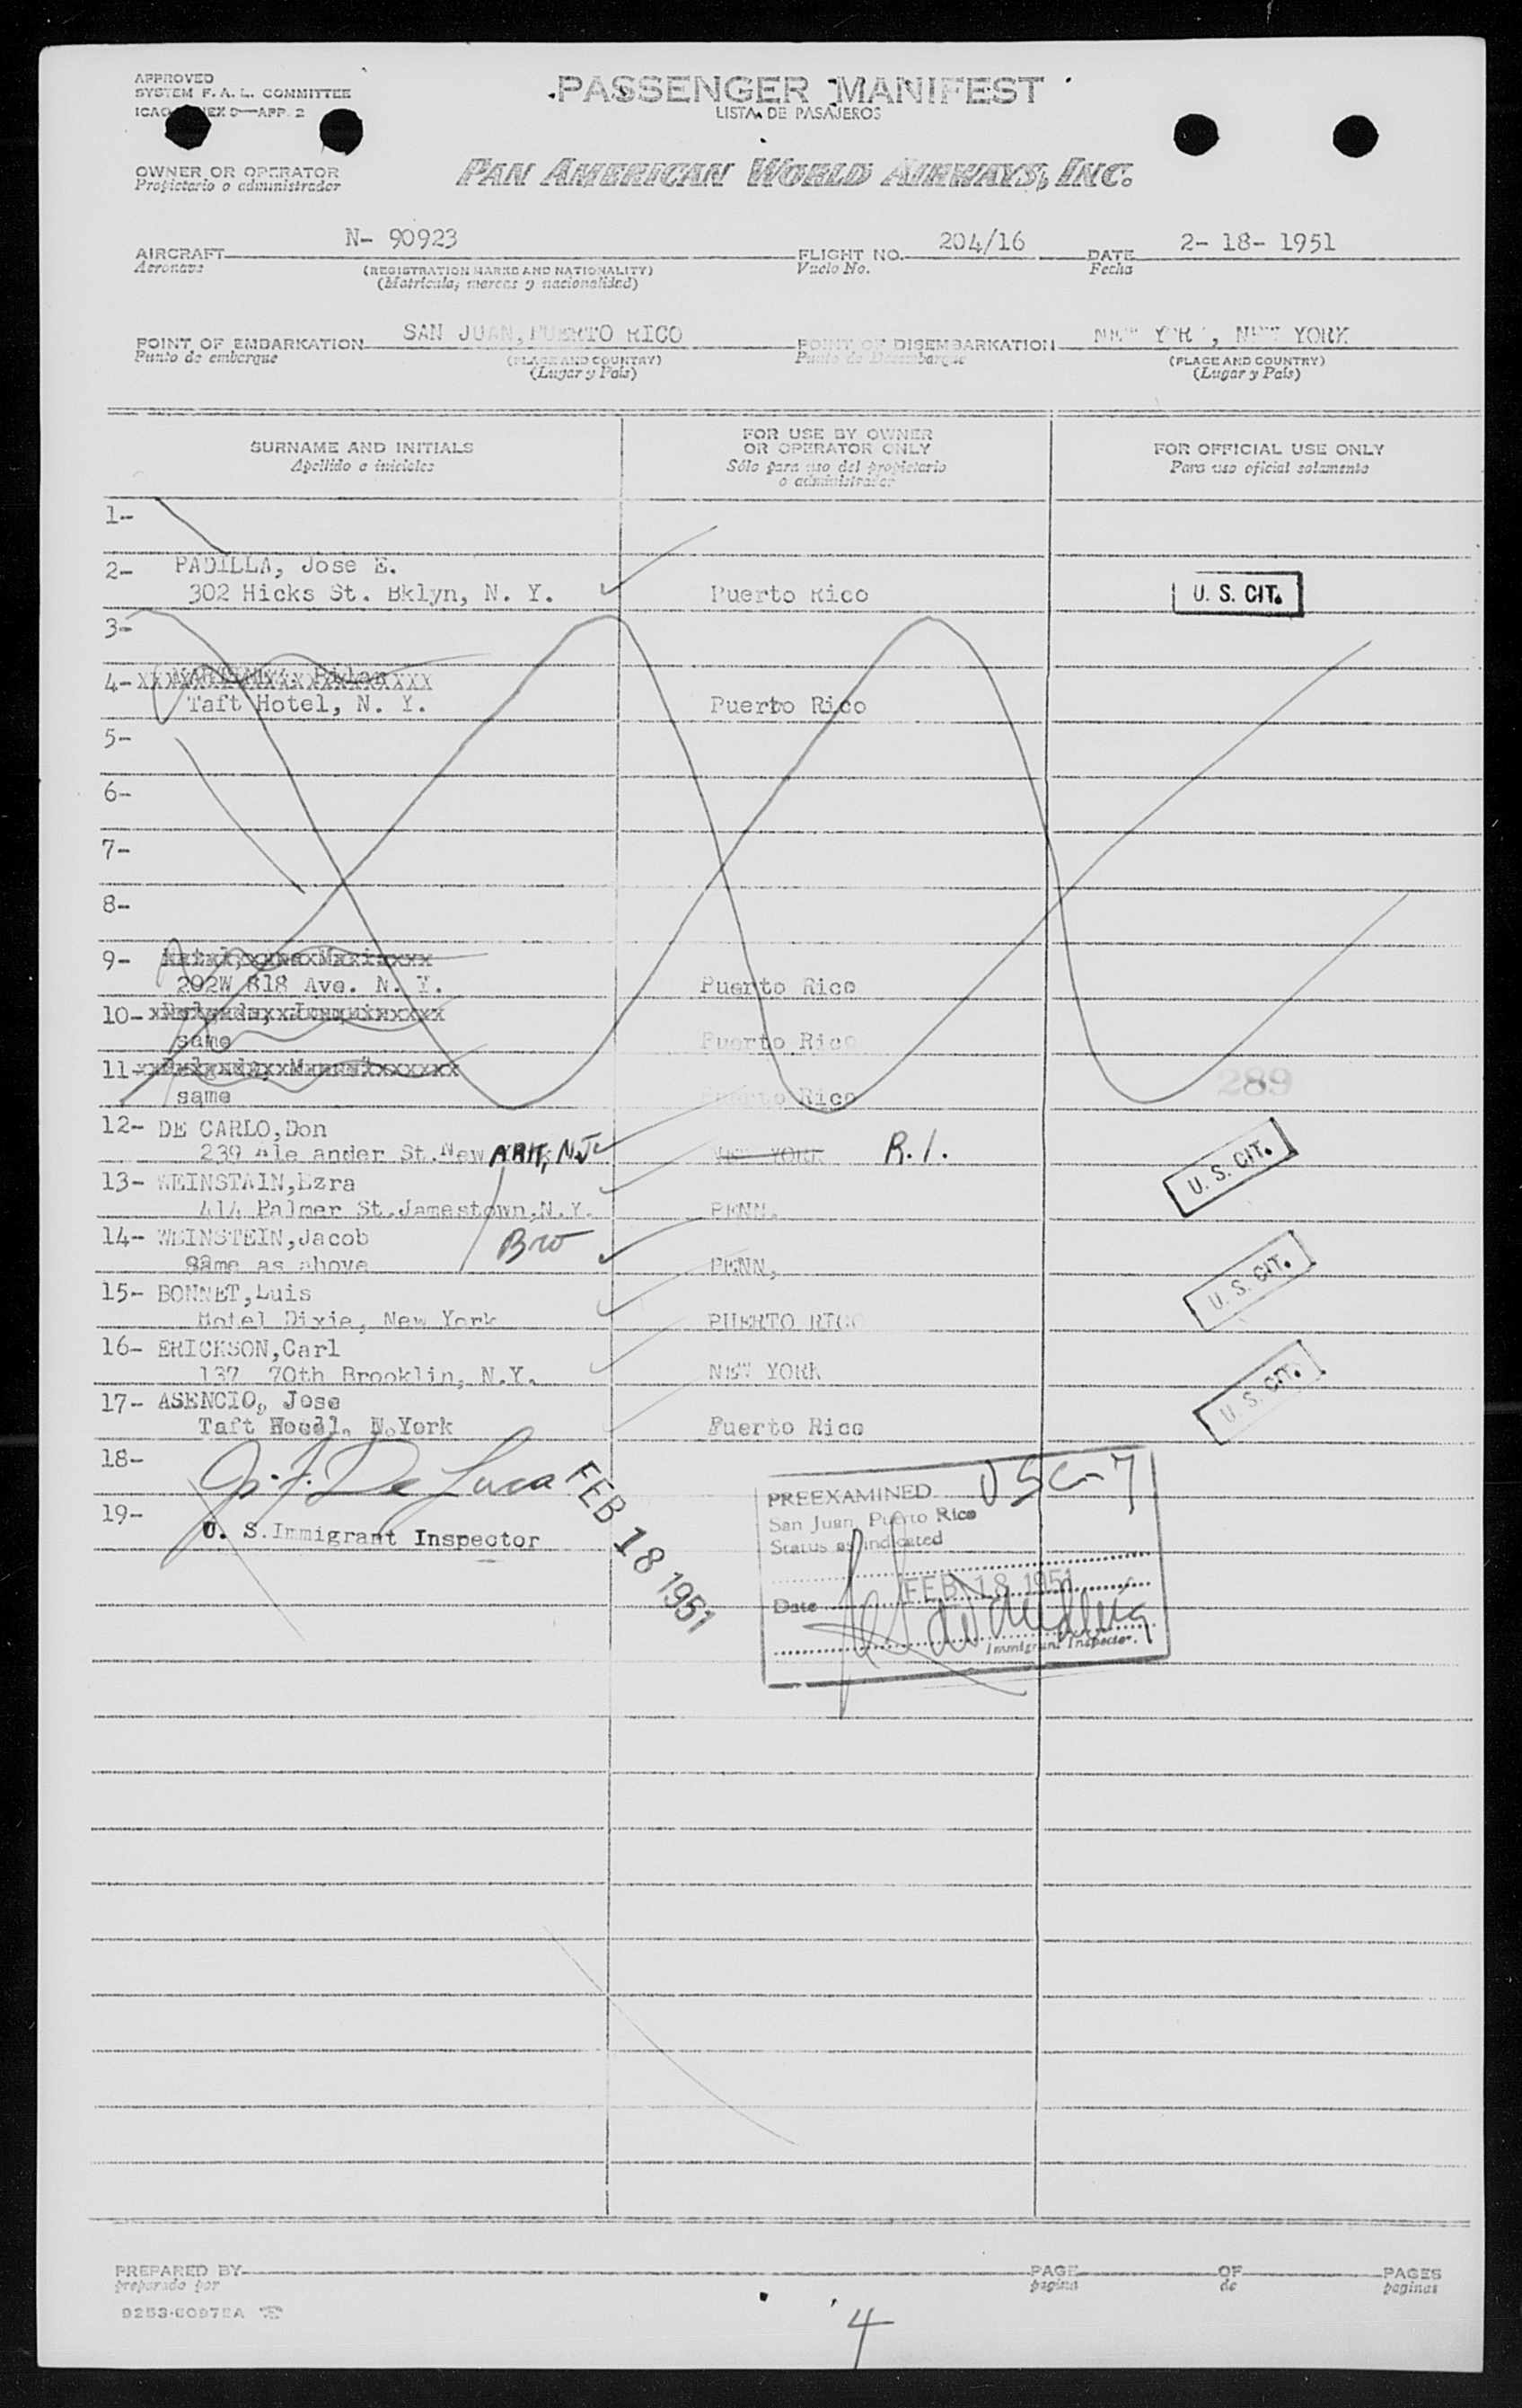 APPROVED
SYSTEM F. A. L. COMMITTEE
APP. 2
PASSENGER MANIFEST
LISTA DE PASAJEROS
OWNER OR OPERATOR
Propietario o administrador
PAN AMERICAN WORLD AIRWAYS, INC.
AIRCRAFT N- 90923 FLIGHT NO. 204/16 DATE 2- 18- 1951
Aeronave (REGISTRATION MARKS AND NATIONALITY) Vuelo No. Fecha
(Matricula, marcas y nacionalidad)
POINT OF EMBARKATION SAN JUAN, PUERTO RICO POINT OF DISEMBARKATION NEW YORK, NEW YORK
Punto de embarque (PLACE AND COUNTRY) Punto de Desembarque (PLACE AND COUNTRY)
(Lugar y País) (Lugar y País)
SURNAME AND INITIALS
Apellido e iniciales
FOR USE BY OWNER
OR OPERATOR ONLY
Sólo para uso del propietario
o administrador
FOR OFFICIAL USE ONLY
Para uso oficial solamente
1-
2- PADILLA, Jose E.
302 Hicks St. Bklyn, N. Y. Puerto Rico U. S. CIT.
3-
4-
Taft Hotel, N. Y. Puerto Rico
5-
6-
7-
8-
9-
202W 818 Ave. N. Y. Puerto Rico
10-
same Puerto Rico
11-
same Puerto Rico
289
12- DE CARLO,Don
239 Ale ander St.New ARK, N.J. NEW YORK R.I. U. S. CIT.
13- WEINSTAIN,Ezra
414 Palmer St.Jamestown,N.Y. PENN.
14- WEINSTEIN,Jacob Bro
same as above PENN, U. S. CIT.
15- BONNET,Luis
Hotel Dixie, New York PUERTO RICO
16- ERICKSON,Carl
137 70th Brooklin, N.Y. NEW YORK
17- ASENCIO, Jose U. S. CIT.
Taft N.York Puerto Rico
18-
De Luca
FEB 18 1951
19-
U. S.Immigrant Inspector
PREEXAMINED USC-7
San Juan, Puerto Rico
Status as indicated
Date FEB 18 1951
Immigrant Inspector.
PREPARED BY PAGE OF PAGES
preparado por pagina de paginas
4